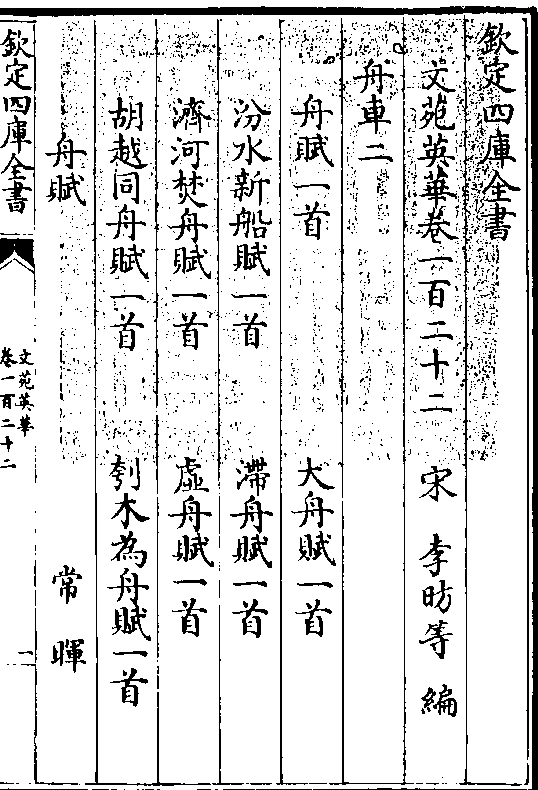 欽定四庫全書
文苑英華卷一百二十二　宋　李昉等　編
舟車二
舟賦一首　大舟賦一首
汾水新船賦一首　滯舟賦一首
濟河焚舟賦一首　虛舟賦一首
胡越同舟賦一首　刳木為舟賦一首
舟賦　常暉
欽定四庫全書
文苑英華
卷一百二十二
一